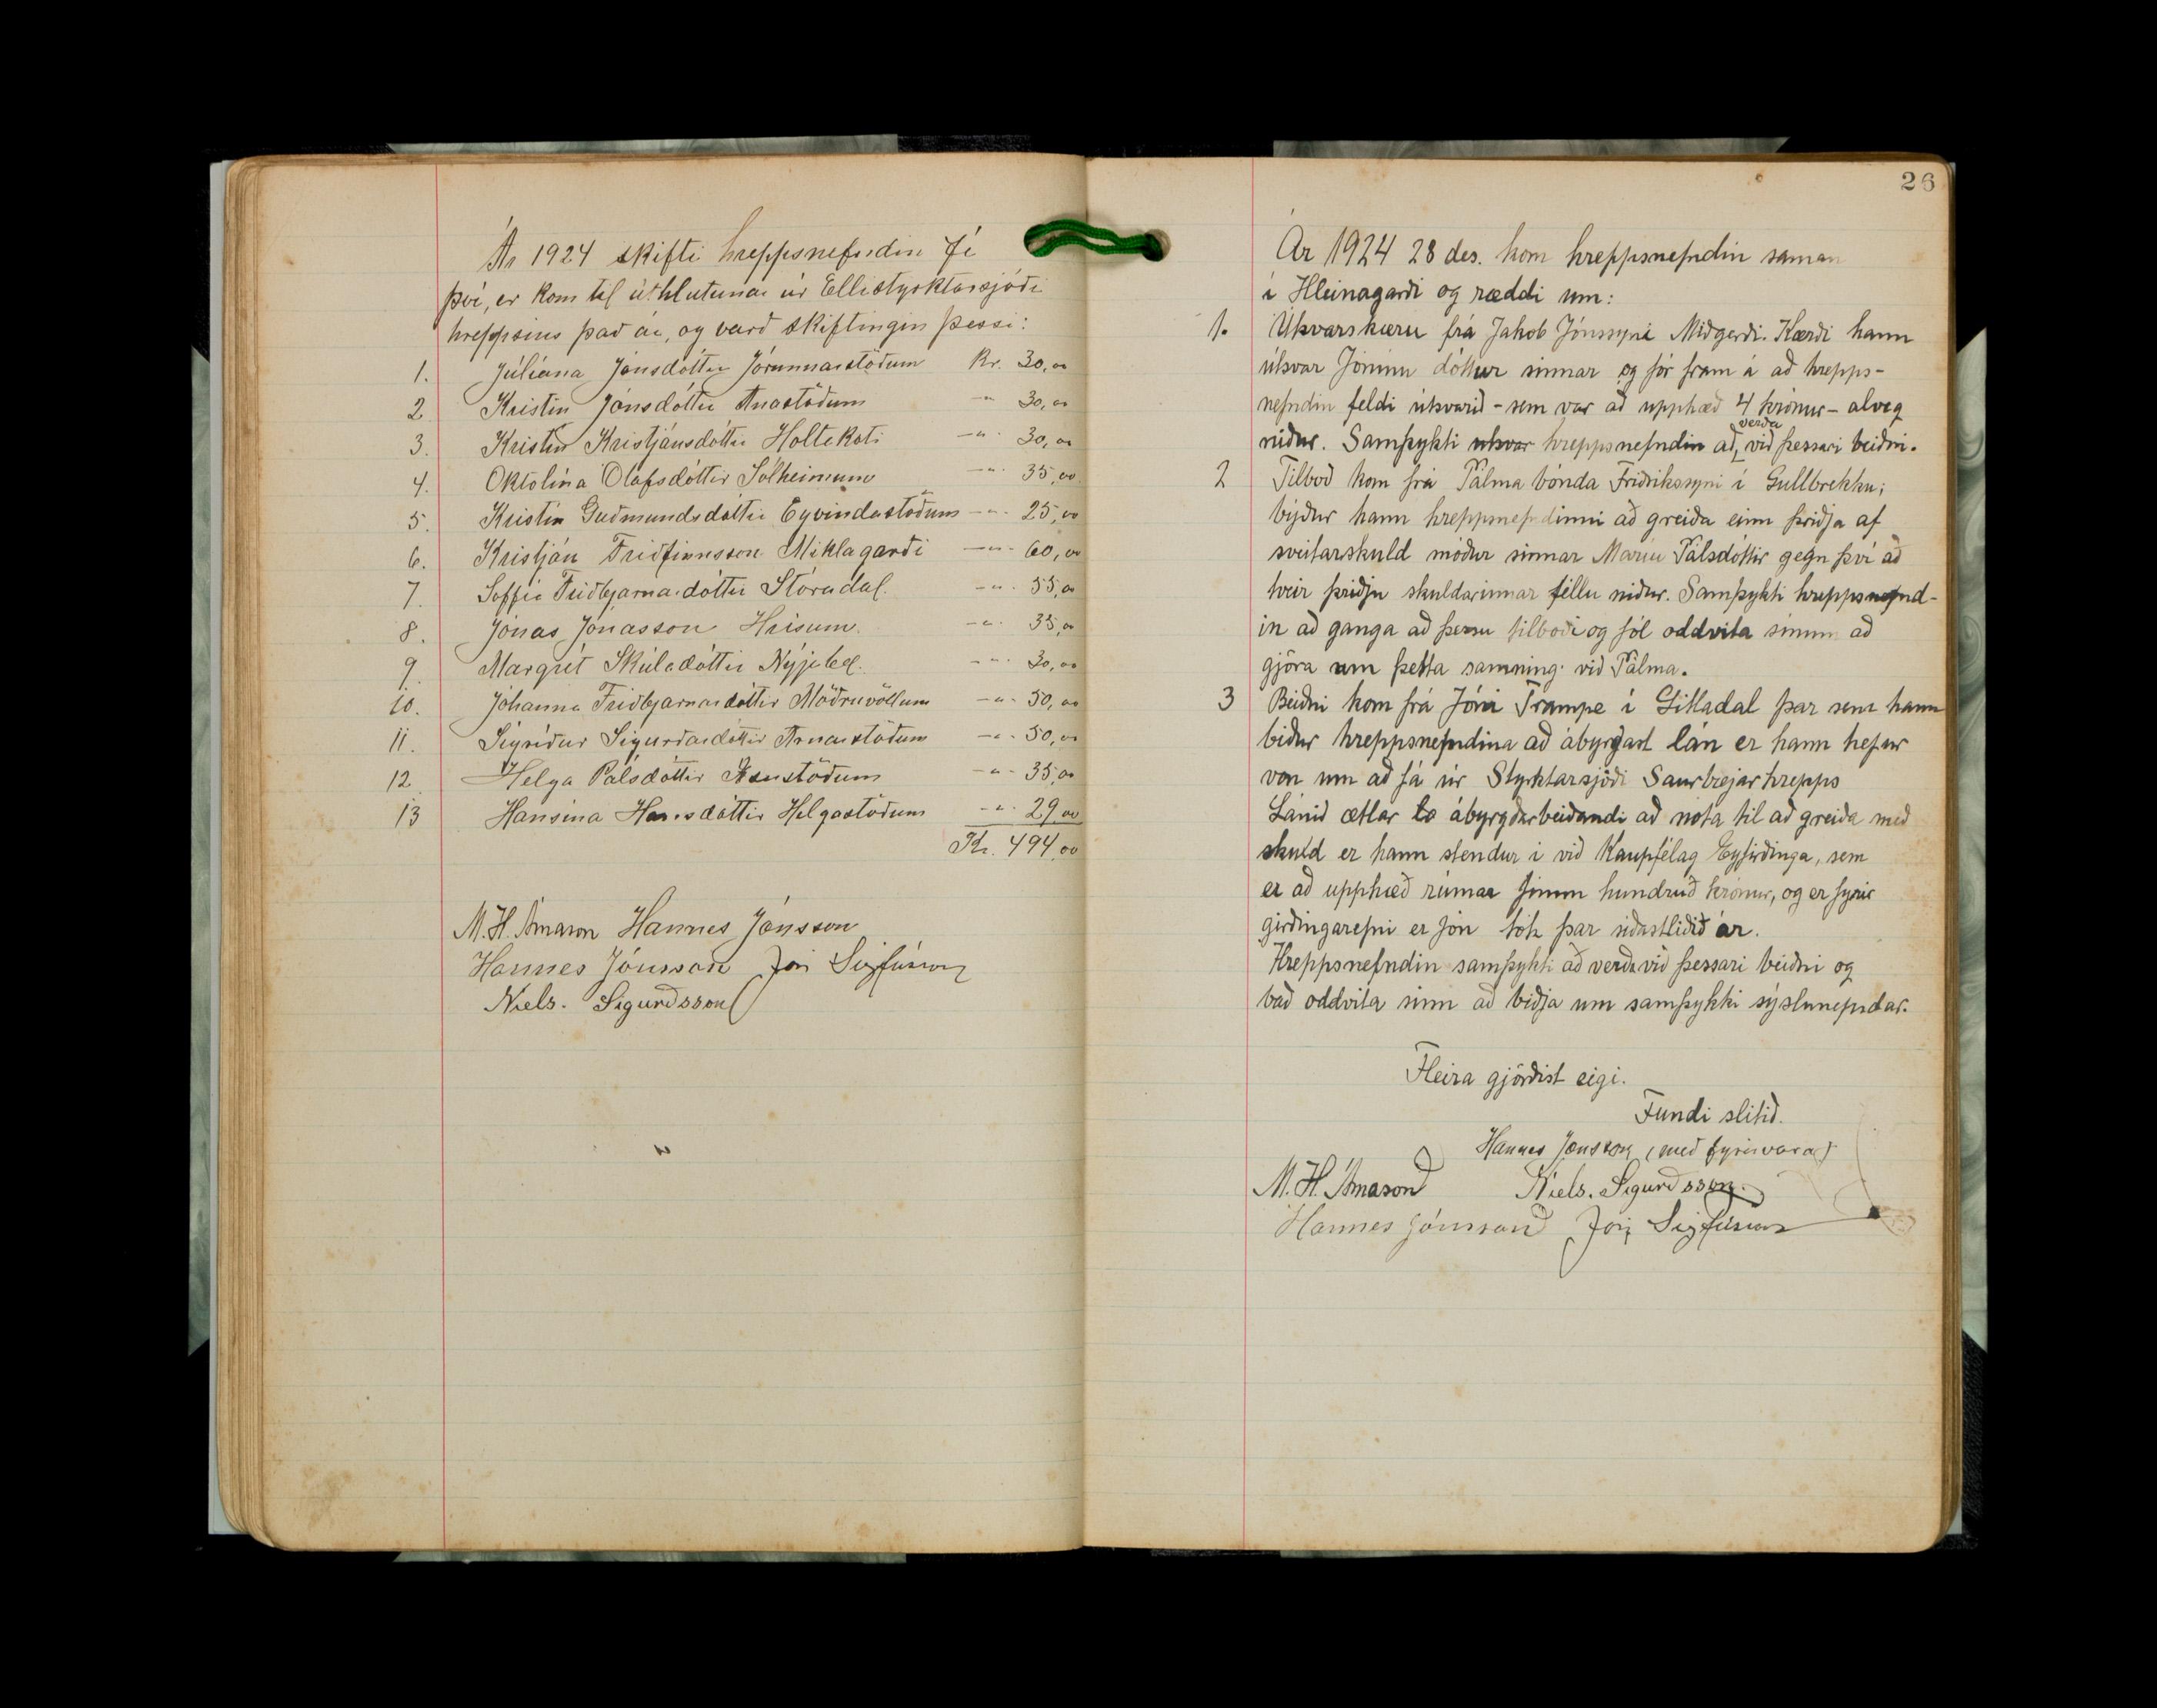 Ár 1924 skifti hreppsnefndin fé
því, er kom til úthlutunar úr Ellistyrktarsjóði
hreppsins það ár, og varð skiftingin þessi:
1. Júlíana Jónsdóttir Jórunnarstöðum Kr. 30,00
2 Kristín Jónsdóttir Arnastöðum -"- 30,00
3. Kristín Kristjánsdóttir Holtakoti -"- 30,00
4. Oktolína Ólafsdóttir Sólheimum -"- 35,00
5. Kristín Guðmundsdóttir Eyvindastöðum -"- 25,00
6. Kristján Friðfinnsson Miklagarði -"- 60,00
7. Soffía Friðbjarnardóttir Stóradal. -"- 55,00
8. Jónas Jónasson Hrísum. -"- 35,00
9. Margrét Skúladóttir Nýjabæ. -"- 30,00
10. Jóhanna Friðbjarnardóttir Möðruvöllum -"- 50,00
11. Sigríður Sigurðardóttir Arnarstöðum -"- 50,00
12. Helga Pálsdóttir -"- 35,00
13 Hansína Hansdóttir Helgastöðum -"- 29,00
Kr. 494,00
M. H. Árnason Hannes Jónsson
Hannes Jónsson Jón Sigfússon
Níels. Sigurðsson
26
Ár 1924 28 des. kom hreppsnefndin saman
í Hleinagarði og ræddi um:
1. Útsvarskæru frá Jakob Jónssyni Miðgerði. Kærði hann
útsvar Jónínu dóttur sinnar og fór fram á að hrepps-
nefndin feldi útsvarið - sem var að upphæð 4 krónur - alveg
niður. Samþykti útsvar hreppsnefndin að verða við þessari beiðni.
2 Tilboð kom frá Pálma bónda Friðrikssyni í Gullbrekku;
býður hann hreppsnefndinni að greiða einn þriðja af
sveitarskuld móður sinnar Maríu Pálsdóttir gegn því að
tveir þriðju skuldarinnar féllu niður. Samþykti hreppsnefnd-
in að ganga að þessu tilboði og fól oddvita sínum að
gjöra um þetta samning við Pálma.
3 Beiðni kom frá Jóni Trampe í Litladal þar sem hann
biður hreppsnefndina að ábyrgjast lán er hann hefur
von um að fá úr Styrktarsjóði Saurbæjarhrepps
Lánið ætlar ábyrgðarbeiðandi að nota til að greiða með
skuld er hann stendur í við Kaupfélag Eyfirðinga, sem
er að upphæð rúmar fimm hundruð krónur, og er fyrir
girðingarefni er Jón tók þar síðastliðið ár.
Hreppsnefndin samþykti að verða við þessari beiðni og
bað oddvita sinn að biðja um samþykki sýslunefndar.
Fleira gjörðist eigi.
Fundi slitið.
Hannes Jónsson (með fyrirvara)
M. H. Árnason Níels. Sigurðsson.
Hannes Jónsson Jón Sigfússon